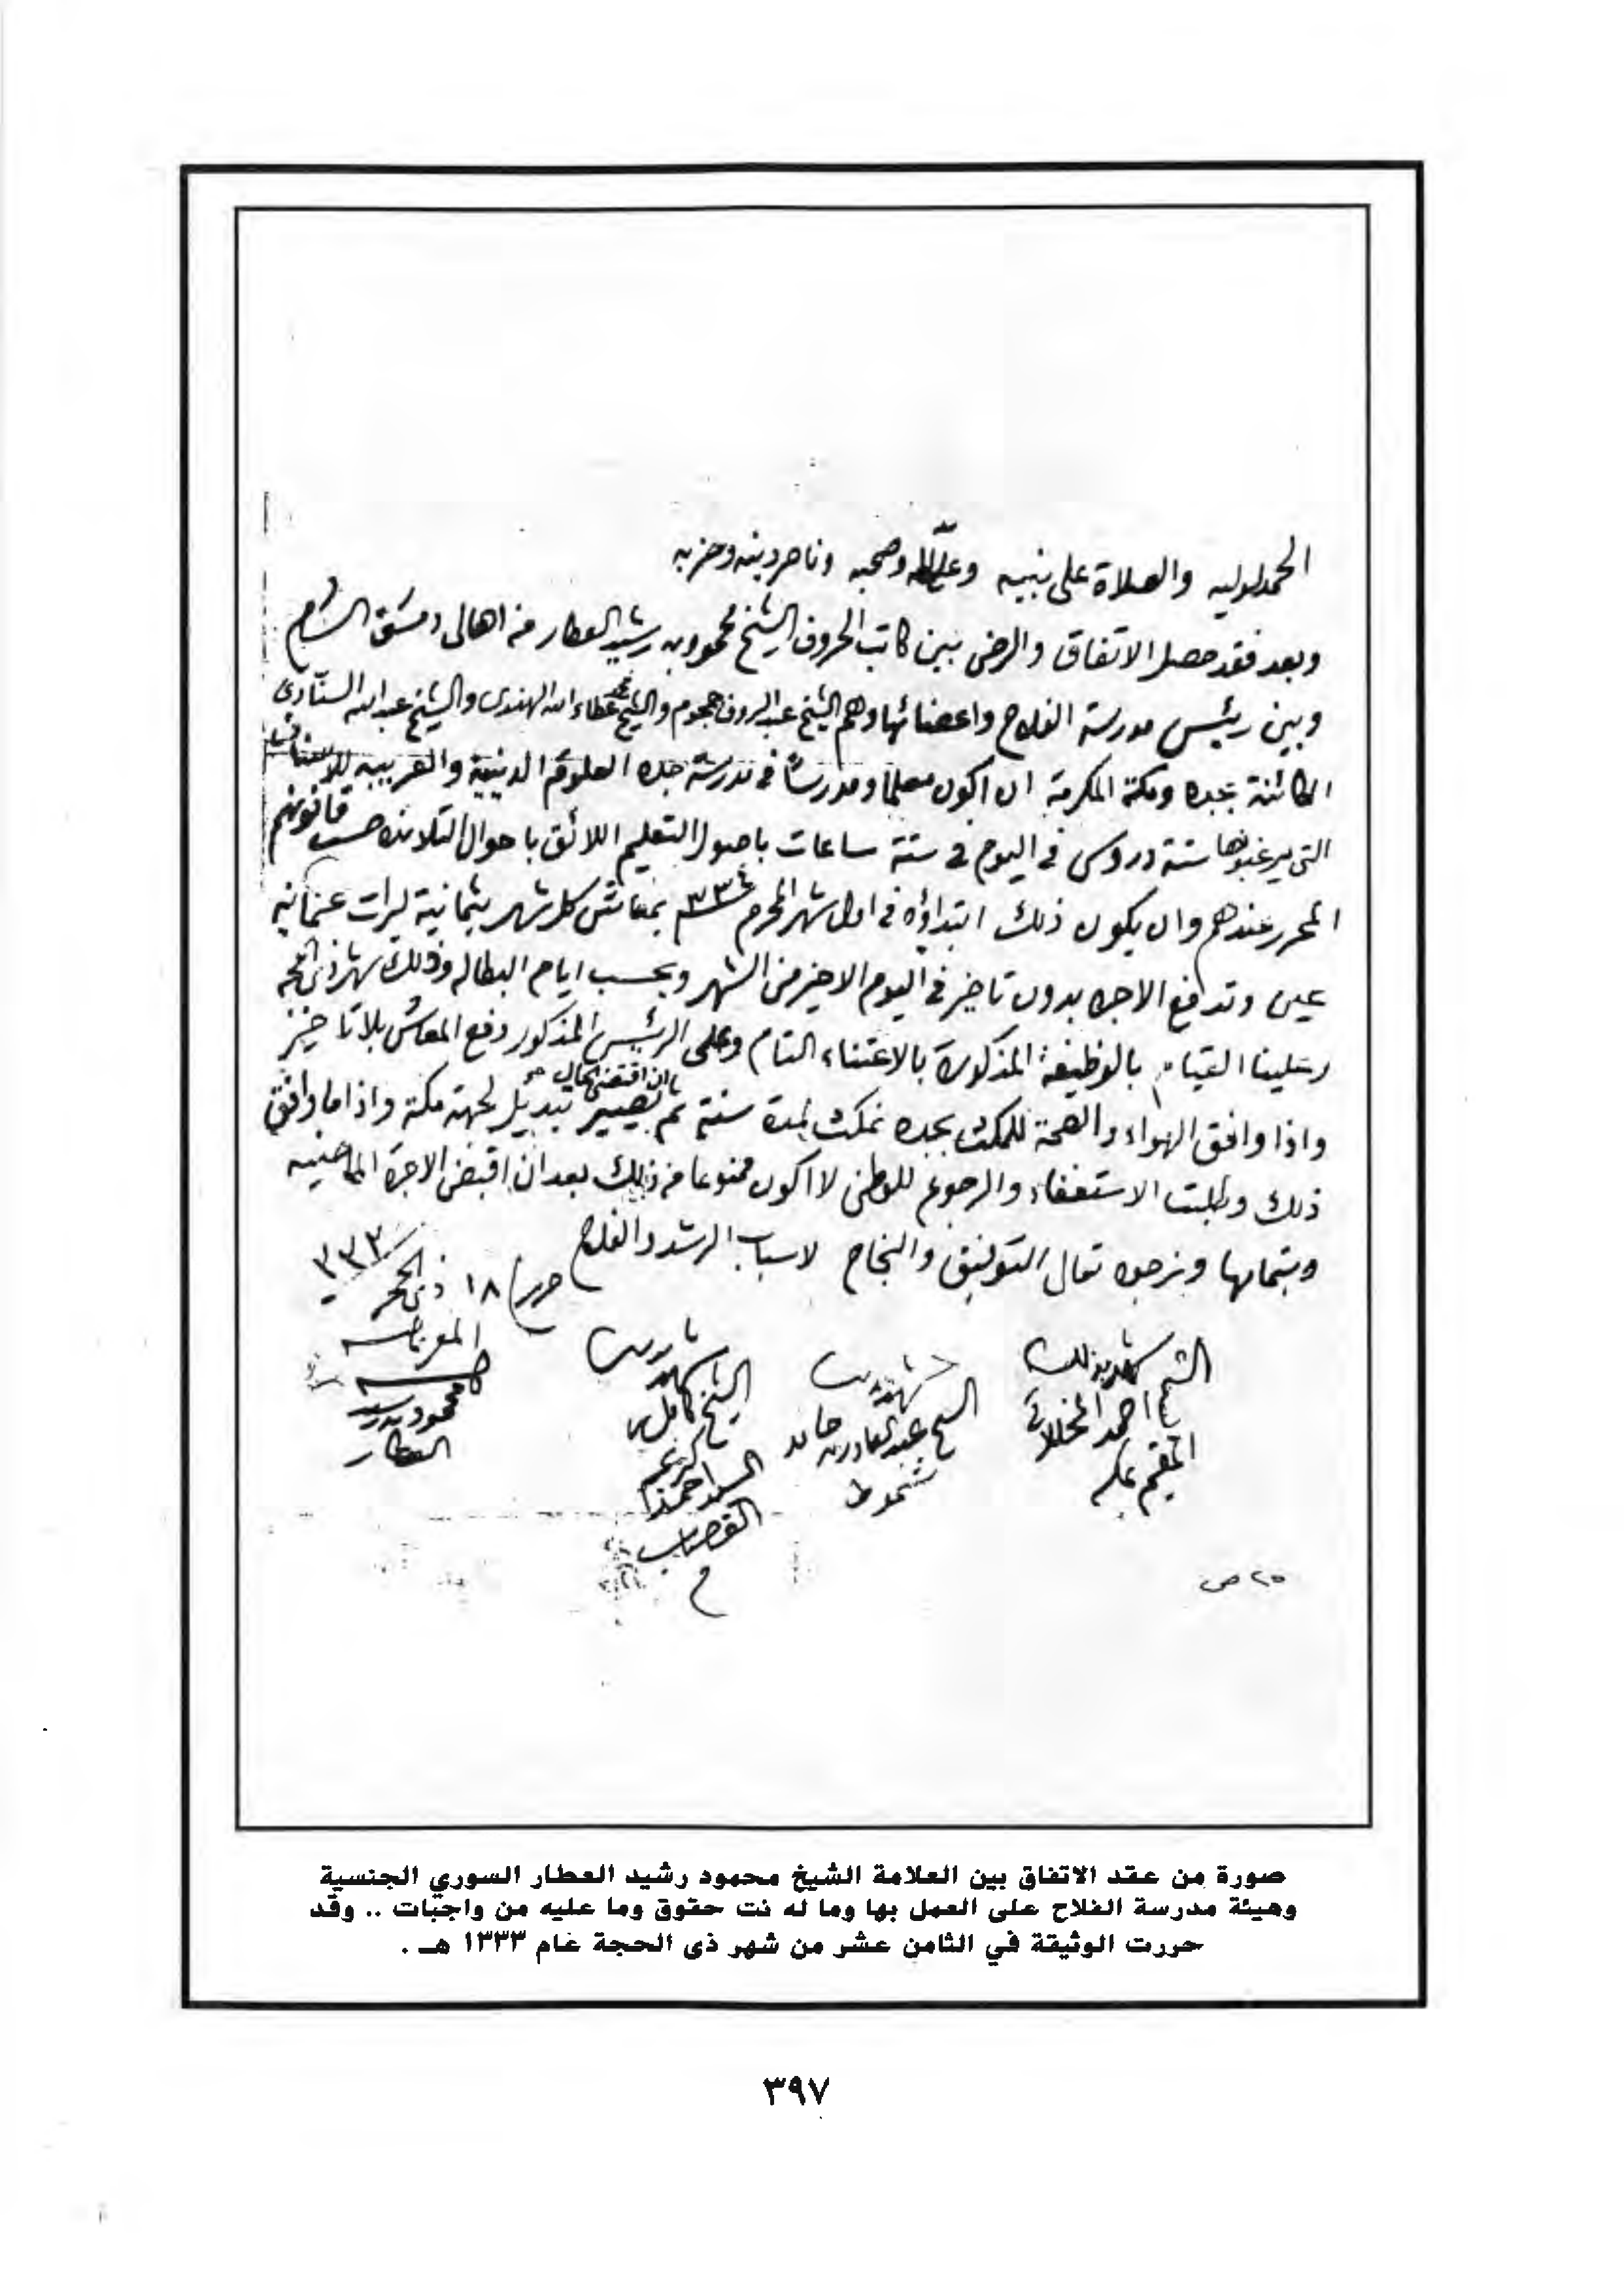 الحمد لوليه والصلاة على نبيه وعلى آله وصحبه وناصر دينه وحزبه
وبعد فقد حصل الاتفاق والرضى بين كاتب الحروف الشيخ محمود بن رشيد العطار من اهالى دمشق الشام
وبين رئيس مدرسة الفلاح واعضائها وهم الشيخ عبد الرؤف جمجوم والشيخ محمد عطاء الله الهندى والشيخ عبد الله السنّادى
الكائنة بجده ومكة المكرمة ان اكون معلما ومدرسًا فى مدرسة جده العلوم الدينية والعربية للاصناف
التى يرغبونها ستة دروس فى اليوم فى ستة ساعات باصول التعليم اللائق باحوال التلامذه حسب قانونهم
المحرر عندهم وان يكون ذلك ابتداؤه فى اول شهر المحرم ٣٣٤ بمعاش كل شهر بثمانية ليرات عثمانيه
عين وتدفع الاجره بدون تاخير فى اليوم الاخير من الشهر وبحسب ايام البطاله وذلك شهر ذى الحجه
وعلينا القيام بالوظيفة المذكورة بالاعتناء التام وعلى الرئيس المذكور دفع المعاش بلا تاخير
ان اقتضى الحال
واذا وافق الهواء والصحة للمكث بجده نمكث لمدة سنة ثم يصير تبديل لجهة مكة واذا ما وافق
ذلك وطلبت الاستعفاء والرجوع للوطن لا اكون ممنوعا من ذلك بعد ان اقبض الاجرة الماضيه
وبتمامها ونرجوه تعالى التوفيق والنجاح لاسباب الرشد والفلاح
حرر ١٨ ذى الحجه ٣٣٣
شهد بذلك
الشيخ احمد المخللاتى
المقيم بمكه
شهد بذلك
الشيخ عبد القادر بن خالد
شموط
شهد بذلك
الشيخ كامل بن
السيد احمد
القصاب
م
محمود بن رشيد
العطار
٢٥ ص
صورة من عقد الاتفاق بين العلامة الشيخ محمود رشيد العطار السوري الجنسية
وهيئة مدرسة الفلاح على العمل بها وما له نت حقوق وما عليه من واجبات .. وقد
حررت الوثيقة في الثامن عشر من شهر ذى الحجة عام ١٣٣٣ هـ .
٣٩٧